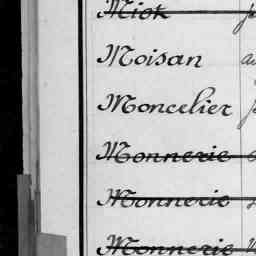 Miok
Moisan
Moncelier
Monnerie
Monnerie
Monnerie